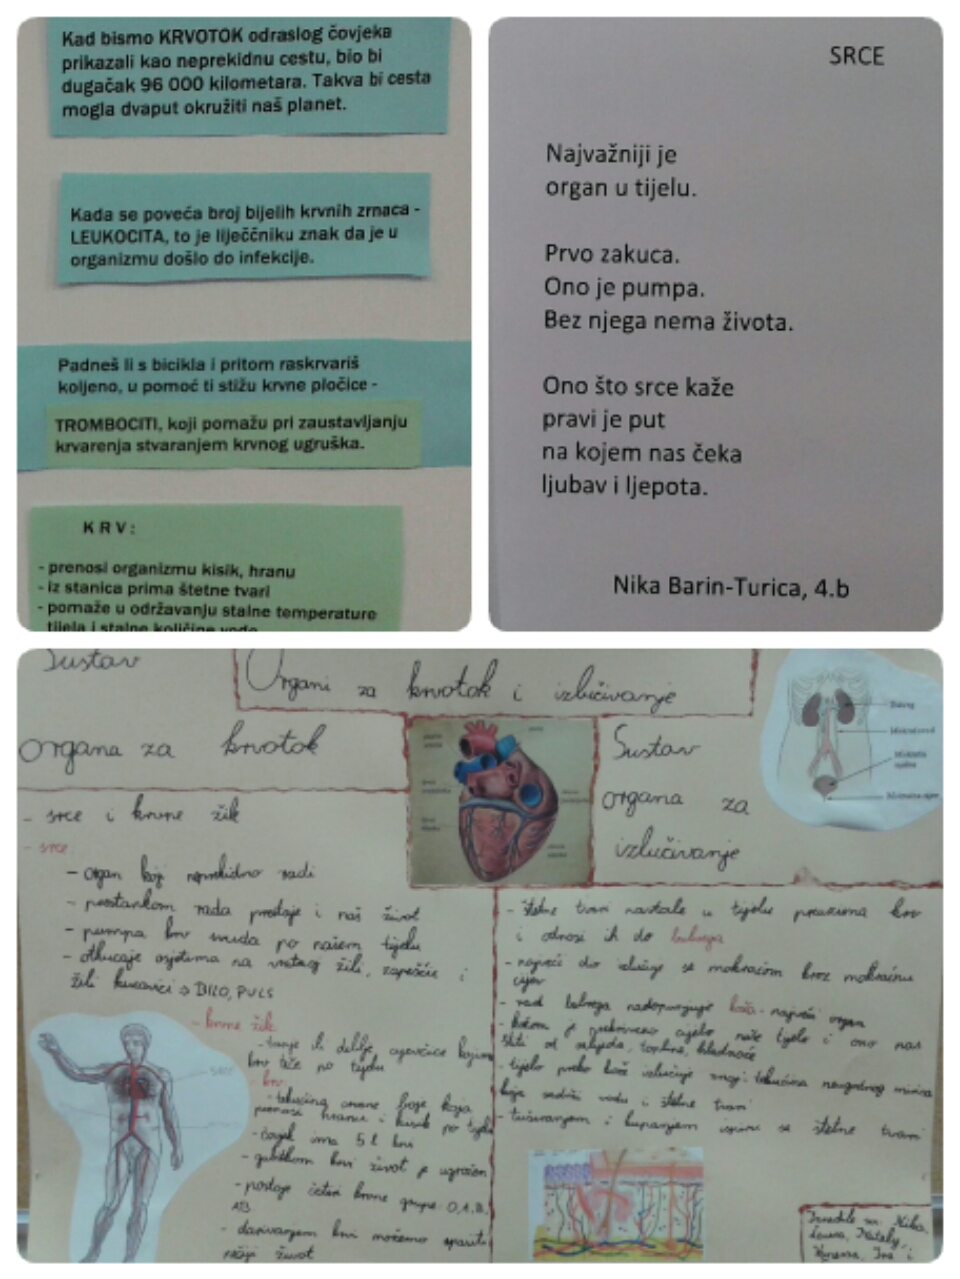 Kad bismo KRVOTOK odraslog čovjeka
prikazali kao neprekidnu cestu, bio bi
dugačak 96 000 kilometara. Takva bi cesta
mogla dvaput okružiti naš planet.
Kada se poveća broj bijelih krvnih zrnaca -
LEUKOCITA, to je liječčniku znak da je u
organizmu došlo do infekcije.
Padneš li s bicikla i pritom raskrvariš
koljeno, u pomoć ti stižu krvne pločice -
TROMBOCITI, koji pomažu pri zaustavljanju
krvarenja stvaranjem krvnog ugruška.
KRV:
- prenosi organizmu kisik, hranu
- iz stanica prima štetne tvari
- pomaže u održavanju stalne temperature
tijela i stalne količine vode
SRCE
Najvažniji je
organ u tijelu.
Prvo zakuca.
Ono je pumpa.
Bez njega nema života.
Ono što srce kaže
pravi je put
na kojem nas čeka
ljubav i ljepota.
Nika Barin-Turica, 4.b
Organi za krvotok i izlučivanje
Sustav
organa za krvotok
- srce i krvne žile
- srce:
- organ koji neprekidno radi
- prestankom rada prestaje i naš život
- pumpa krv svuda po našem tijelu
- otkucaje osjetimo na vratnoj žili, zapešće i
žili kucavici → BILO, PULS
- krvne žile
- tanje ili deblje cjevčice kojima
krv teče po tijelu
- krv
- tekućina crvene boje koja
prenosi hranu i kisik po tijelu
- čovjek ima 5 l krvi
- gubitkom krvi život je ugrožen
- postoje četiri krvne grupe: O, A, B,
AB
- darivanjem krvi možemo spasiti
nečiji život
Sustav
organa za
izlučivanje
- štetne tvari nastale u tijelu preuzima krv
i odnosi ih do bubrega
- najveći dio izlučuje se mokraćom kroz mokraćnu
cijev
- rad bubrega nadopunjuje koža - najveći organ
- kožom je prekriveno cijelo naše tijelo i ono nas
štiti od ozljeda, topline, hladnoće
- tijelo preko kože izlučuje znoj: tekućina neugodnog mirisa
koja sadrži vodu i štetne tvari
- tuširanjem i kupanjem ispiru se štetne tvari
Izradile su: Nika,